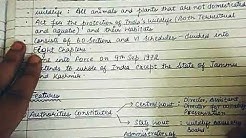 wildlife :- All animals and plants that are not domesticated
Act for the protection of India's wildlife (both Terrestrial
and aquatic) and their habitats
Consist of 60 Sections and VI schedules - divided into
Eight Chapters
Came into Force on 9th Sep. 1972
Extends to whole of India except the State of Jammu
and Kashmir
Features
Authorities Constituted
→ Central Govt : Director, Assistant
Director
→ State Govt : Wildlife Advisory
Board
Administrator of